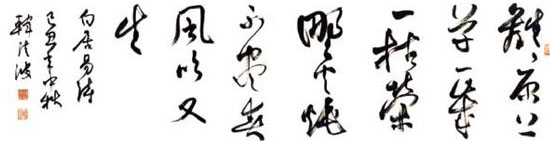 離々原上
草一歲
一枯榮
野火燒
不盡春
風吹又
生
白居易詩
己丑年中秋
韓